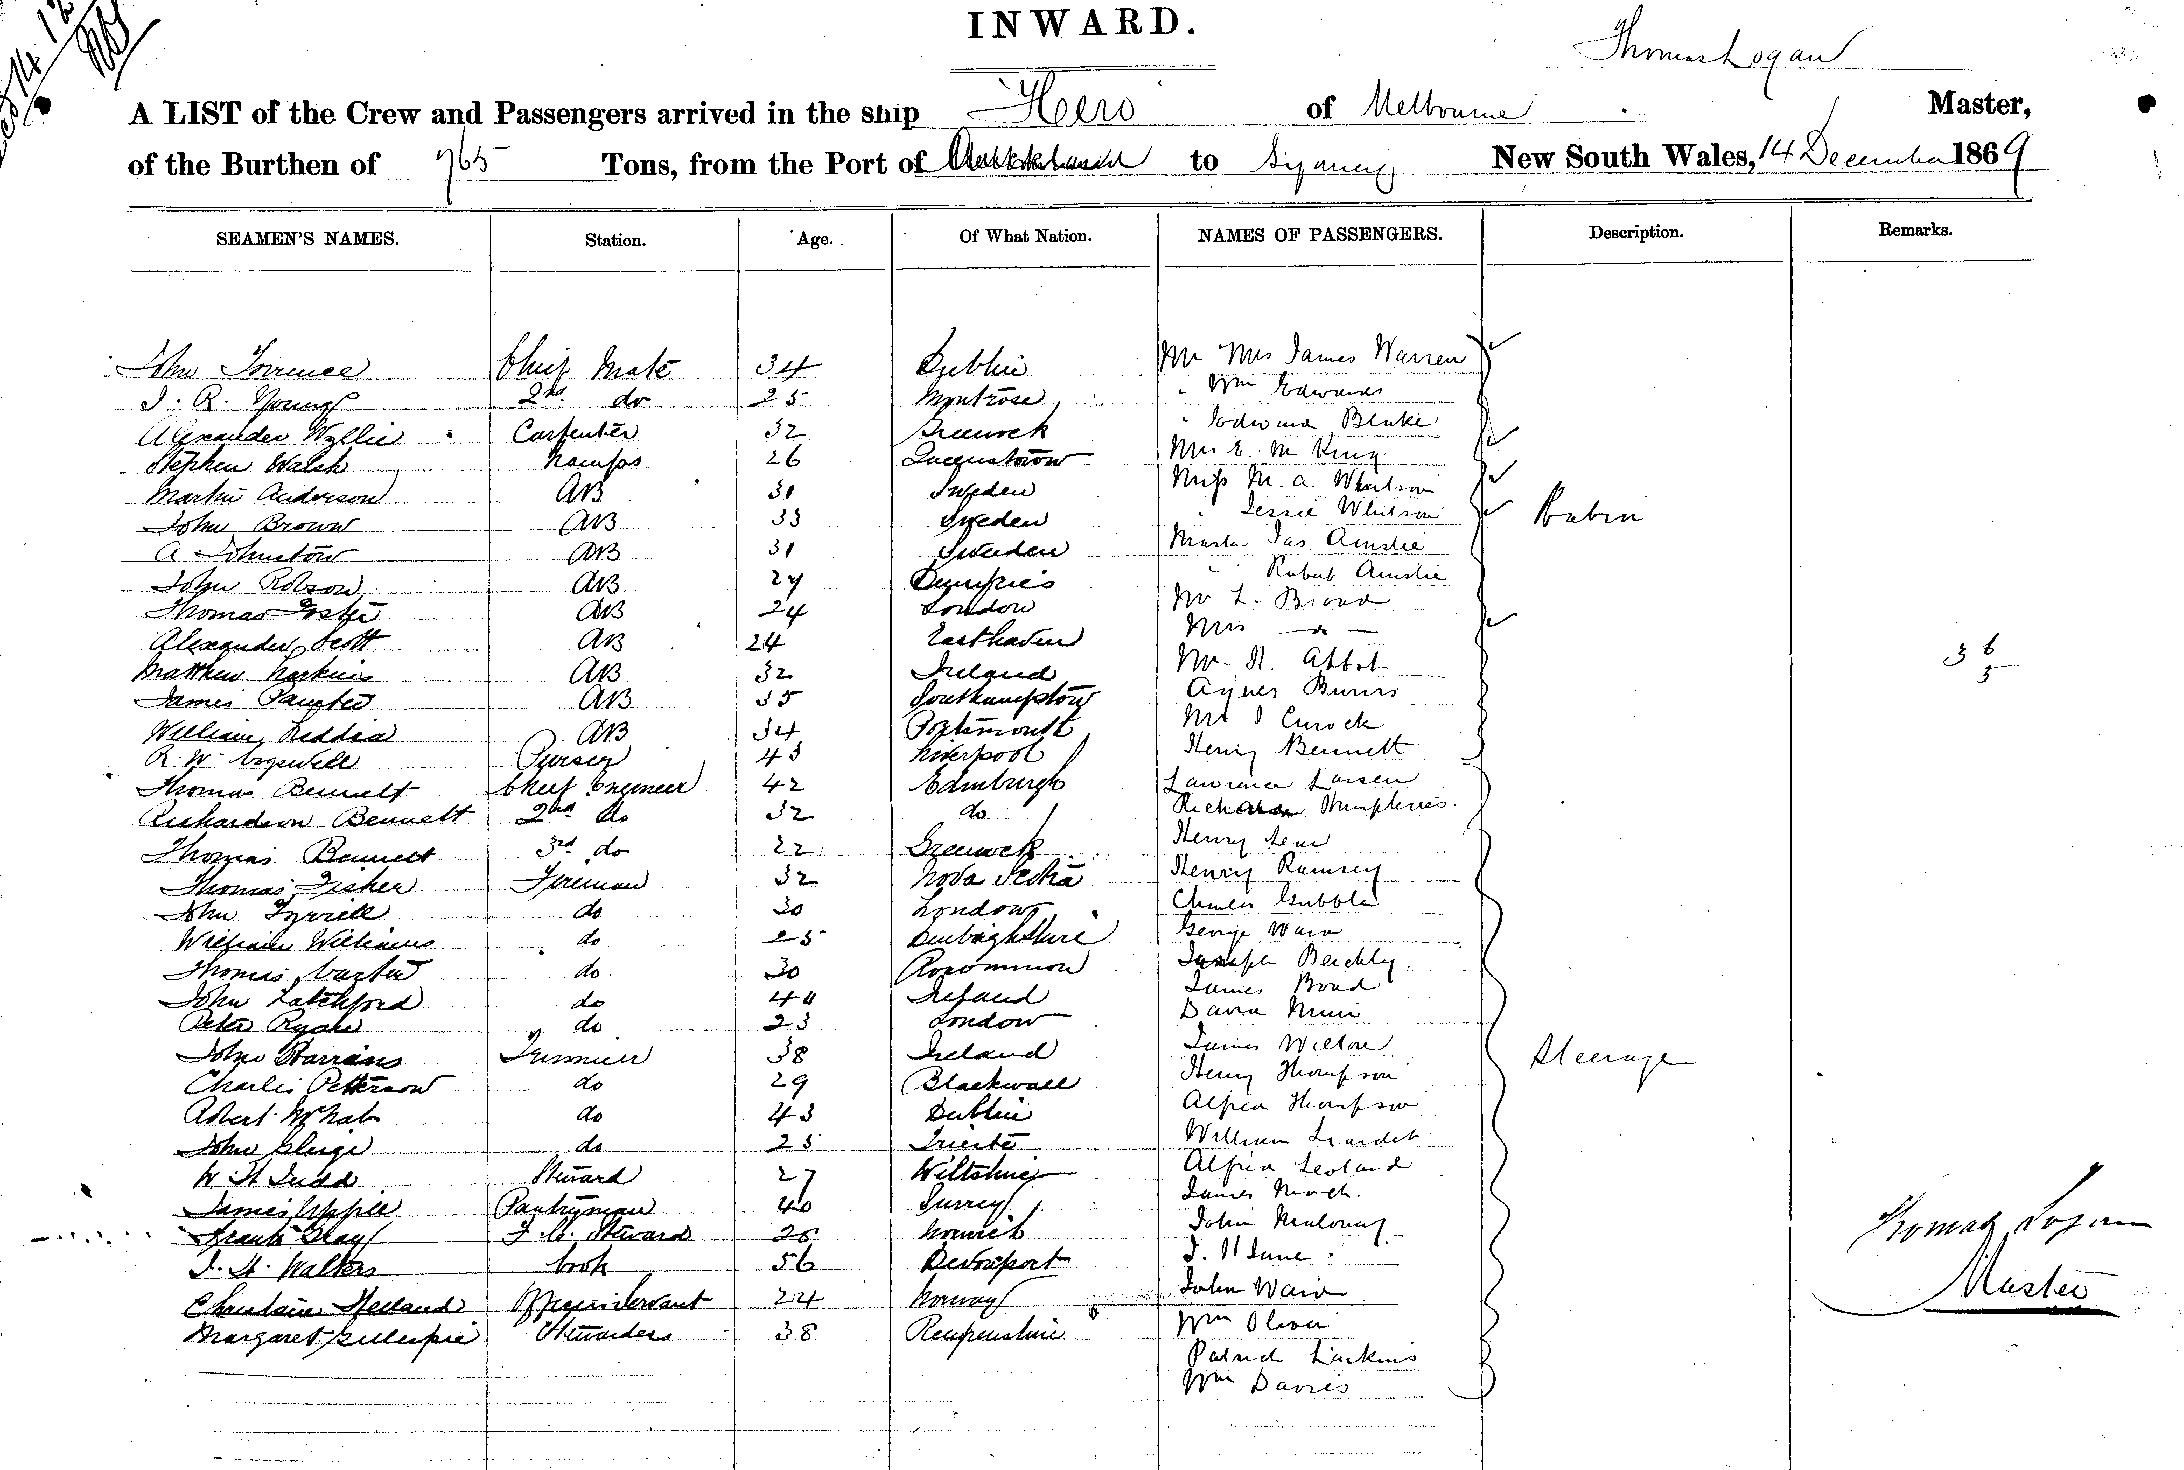 INWARD.
Thomas Logan
A LIST of the Crew and Passengers arrived in the ship Hero of Melbourne Master,
of the Burthen of 965 Tons, from the Port of Auckland to Sydney New South Wales, 14 December 1869
SEAMEN'S NAMES. Station. Age. Of What Nation. NAMES OF PASSENGERS. Description. Remarks.
John Torrence Chief Mate 34 Dublin Mr Mrs James Warren
J. R. Young 2nd do 25 Montrose " Wm Edwards
Alexander Wyllie Carpenter 32 Greenock " Blake
Stephen Walsh Lamps 26 Queenstown Mrs E. M King
Martin Anderson AB 31 Sweden Miss M. A. Whitson
John Brown AB 33 Sweden " Jessie Whitson Cabin
A Johnston AB 31 Sweden Master Jas Ainslie
John Robson AB 29 Dumfries " Robert Ainslie
Thomas Foster AB 24 London Mr L. Broad
Alexander Scott AB 24 Easthaven Mrs - do -
Matthew Harkins AB 32 Ireland Mr R. Abbot
James Painter AB 35 Southampton Agnes Burns
William Liddia AB 34 Portsmouth Mr J Curock
R. W. Cogswell Purser 43 Liverpool Henry Bennett
Thomas Bennett Chief Engineer 42 Edinburgh Lawrence Larsen
Richardson Bennett 2nd do 32 do Richard Humphries.
Thomas Bennett 3rd do 22 Greenock Henry
Thomas Fisher Fireman 32 Nova Scotia Henry Ramsey
John Tyrrell do 30 London Charles Gubble
William Williams do 25 Denbighshire George Ward
Thomas Carter do 30 Roscommon Joseph Beachley
John Latchford do 40 Ireland James Bond
Peter Ryan do 23 London David Muir
John Barrins Trimmer 38 Ireland James Wilton Steerage
Charles Petterson do 29 Blackwall Henry Thompson
Robert McNab do 43 Dublin Alfred Thompson
John Gleige do 25 Trieste William Liardet
W H Judd Steward 27 Wiltshire Alfred Leoland
James Uppill Pantryman 40 Surrey James
Frank Clay F. C. Steward 26 Norwich John Maloney
J. H. Walters Cook 56 Devonport J. H Lane
Christain Helland 24 Norway John Ward
Margaret Gillespie Stewardess 38 Renfrewshire Wm Oliver
Patrick Larkins
Wm Davies
Thomas Logan
Master